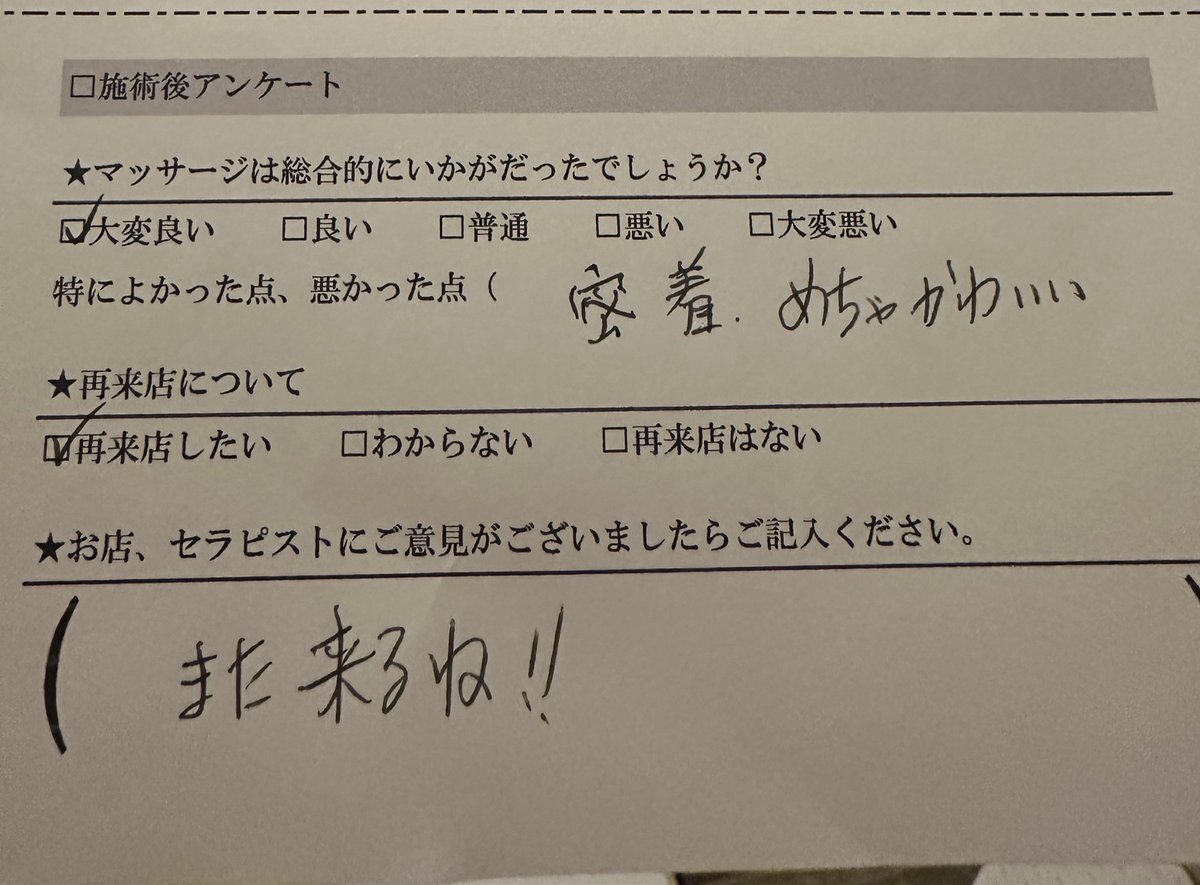 □施術後アンケート
★マッサージは総合的にいかがだったでしょうか？
☑大変良い □良い □普通 □悪い □大変悪い
特によかった点、悪かった点（ 密着. めちゃかわいい
★再来店について
☑再来店したい □わからない □再来店はない
★お店、セラピストにご意見がございましたらご記入ください。
( また来るね!! )